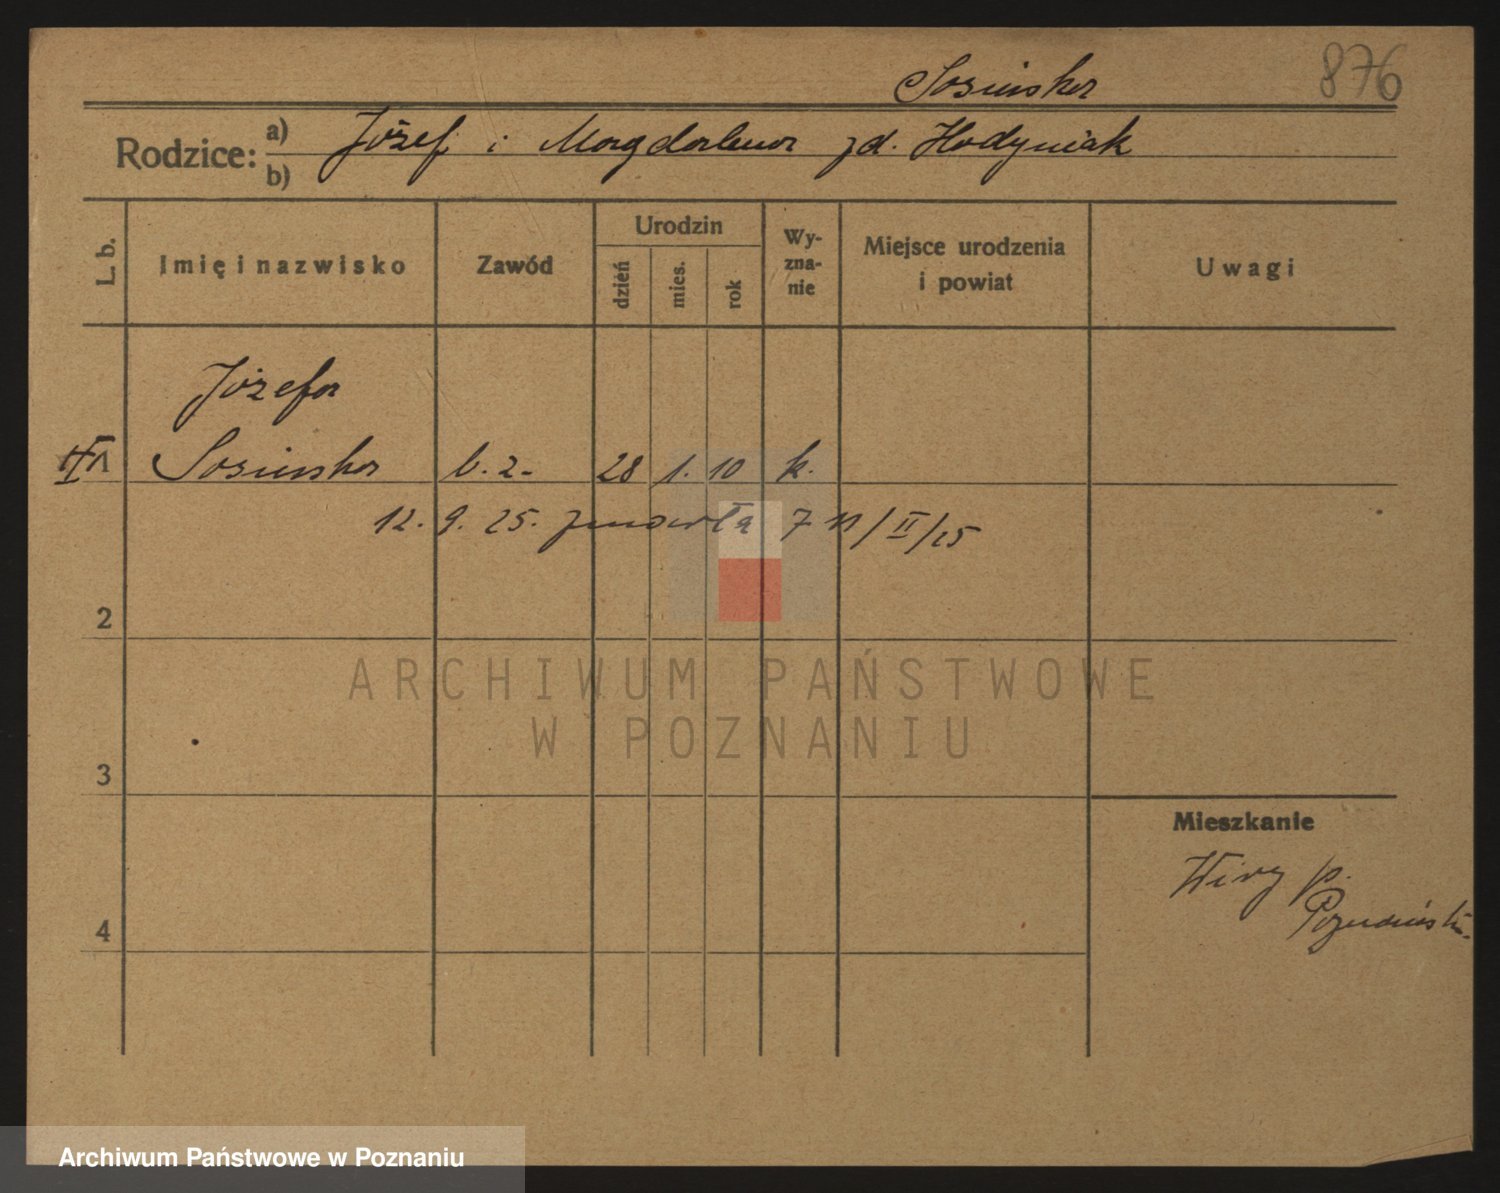 876
Sosińska
Rodzice: a) Józef i Magdalena zd. Hadyniak
b)
L. b. Imię i nazwisko Zawód Urodzin dzień mies. rok Wy-zna-nie Miejsce urodzenia i powiat Uwagi
Józefa
Sosińska b. z. 28 1. 10 k.
12. 9. 25. zmarła 7 11/II/25
2
ARCHIWUM PAŃSTWOWE
W POZNANIU
3
Mieszkanie
Wiry p.
Poznański.
4
Archiwum Państwowe w Poznaniu